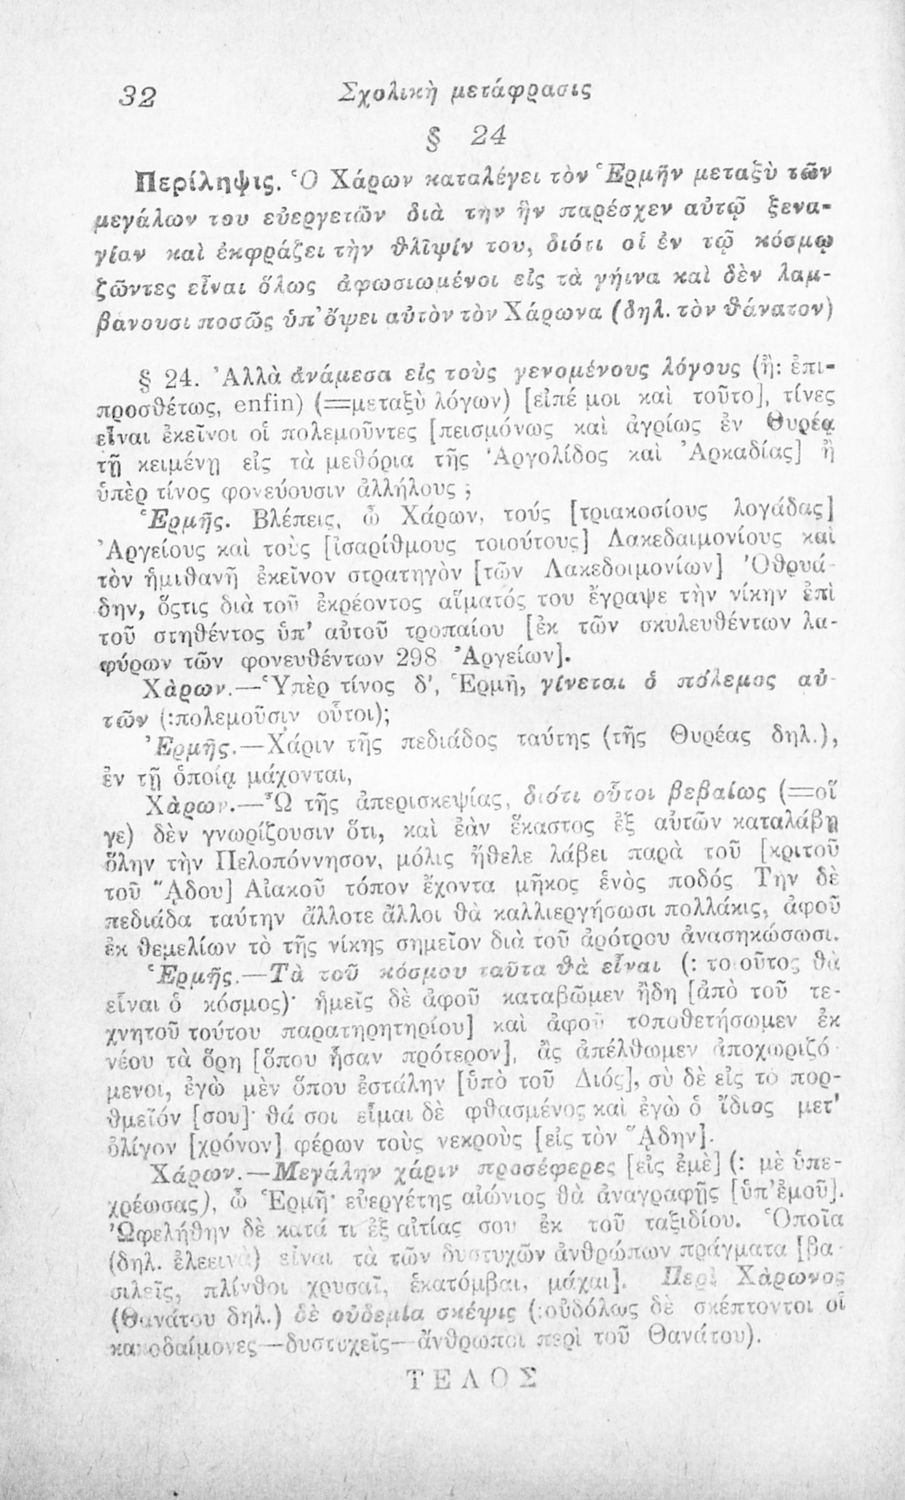 32 Σχολικὴ μετάφρασις
§ 24
Περίληψις. Ὁ Χάρων καταλέγει τὸν Ἑρμῆν μεταξὺ τῶν
μεγάλων του εὐεργετῶν διὰ τὴν ἣν παρέσχεν αὐτῷ ξενα-
γίαν καὶ ἐκφράζει τὴν θλῖψίν του, διότι οἱ ἐν τῷ κόσμῳ
ζῶντες εἶναι ὅλως ἀφωσιωμένοι εἰς τὰ γήινα καὶ δὲν λαμ-
βανουσι ποσῶς ὑπ' ὄψει αὐτὸν τὸν Χάρωνα (δηλ. τὸν θάνατον)
§ 24. Ἀλλὰ ἀνάμεσα εἰς τοὺς γενομένους λόγους (ἢ: ἐπι-
προσθέτως, enfin) (=μεταξὺ λόγων) [εἰπέ μοι καὶ τοῦτο], τίνες
εἶναι ἐκεῖνοι οἱ πολεμοῦντες [πεισμόνως καὶ ἀγρίως ἐν Θυρέᾳ
τῇ κειμένῃ εἰς τὰ μεθόρια τῆς Ἀργολίδος καὶ Ἀρκαδίας] ἢ
ὑπὲρ τίνος φονεύουσιν ἀλλήλους ;
Ἑρμῆς. Βλέπεις, ὦ Χάρων, τούς [τριακοσίους λογάδας]
Ἀργείους καὶ τοὺς [ἰσαρίθμους τοιούτους] Λακεδαιμονίους καὶ
τὸν ἡμιθανῆ ἐκεῖνον στρατηγὸν [τῶν Λακεδοιμονίων] Ὀθρυά-
δην, ὅςτις διὰ τοῦ ἐκρέοντος αἵματός του ἔγραψε τὴν νίκην ἐπὶ
τοῦ στηθέντος ὑπ' αὐτοῦ τροπαίου [ἐκ τῶν σκυλευθέντων λα-
φύρων τῶν φονευθέντων 298 Ἀργείων].
Χὰρων.—Ὑπὲρ τίνος δ', Ἑρμῆ, γίνεται ὁ πόλεμος αὐ-
τῶν (:πολεμοῦσιν οὗτοι);
Ἑρμῆς.—Χάριν τῆς πεδιάδος ταύτης (τῆς Θυρέας δηλ.),
ἐν τῇ ὁποίᾳ μάχονται,
Χὰρων.—Ὢ τῆς ἀπερισκεψίας, διότι οὗτοι βεβαίως (=οἵ
γε) δὲν γνωρίζουσιν ὅτι, καὶ ἐὰν ἕκαστος ἐξ αὐτῶν καταλάβῃ
ὅλην τὴν Πελοπόννησον, μόλις ἤθελε λάβει παρὰ τοῦ [κριτοῦ
τοῦ Ἅδου] Αἰακοῦ τόπον ἔχοντα μῆκος ἑνὸς ποδός Τὴν δὲ
πεδιάδα ταύτην ἄλλοτε ἄλλοι θὰ καλλιεργήσωσι πολλάκις, ἀφοῦ
ἐκ θεμελίων τὸ τῆς νίκης σημεῖον διὰ τοῦ ἀρότρου ἀνασηκώσωσι.
Ἑρμῆς.—Τὰ τοῦ κόσμου ταῦτα θὰ εἶναι (: τοιοῦτος θὰ
εἶναι ὁ κόσμος)· ἡμεῖς δὲ ἀφοῦ καταβῶμεν ἤδη [ἀπὸ τοῦ τε-
χνητοῦ τούτου παρατηρητηρίου] καὶ ἀφοῦ τοποθετήσωμεν ἐκ
νέου τὰ ὄρη [ὅπου ἦσαν πρότερον], ἂς ἀπέλθωμεν ἀποχωριζό-
μενοι, ἐγὼ μὲν ὅπου ἐστάλην [ὑπὸ τοῦ Διός], σὺ δὲ εἰς τὸ πορ-
θμεῖόν [σου]· θά σοι εἶμαι δὲ φθασμένος καὶ ἐγὼ ὁ ἴδιος μετ'
ὀλίγον [χρόνον] φέρων τοὺς νεκροὺς [εἰς τὸν Ἅδην].
Χάρων.—Μεγάλην χάριν προσέφερες [εἰς ἐμὲ] (: μὲ ὑπε-
χρέωσας), ὦ Ἑρμῆ· εὐεργέτης αἰώνιος θὰ ἀναγραφῇς [ὑπ' ἐμοῦ].
Ὠφελήθην δὲ κατά τι ἐξ αἰτίας σου ἐκ τοῦ ταξιδίου. Ὁποῖα
(δηλ. ἐλεεινὰ) εἶναι τὰ τῶν δυστυχῶν ἀνθρώπων πράγματα [βα-
σιλεῖς, πλίνθοι χρυσαῖ, ἑκατόμβαι, μάχαι]. Περὶ Χὰρωνος
(Θανάτου δηλ.) δὲ οὐδεμία σκέψις (:οὐδόλως δὲ σκέπτοντοι οἱ
κακοδαίμονες—δυστυχεῖς—ἄνθρωποι περὶ τοῦ Θανάτου).
ΤΕΛΟΣ